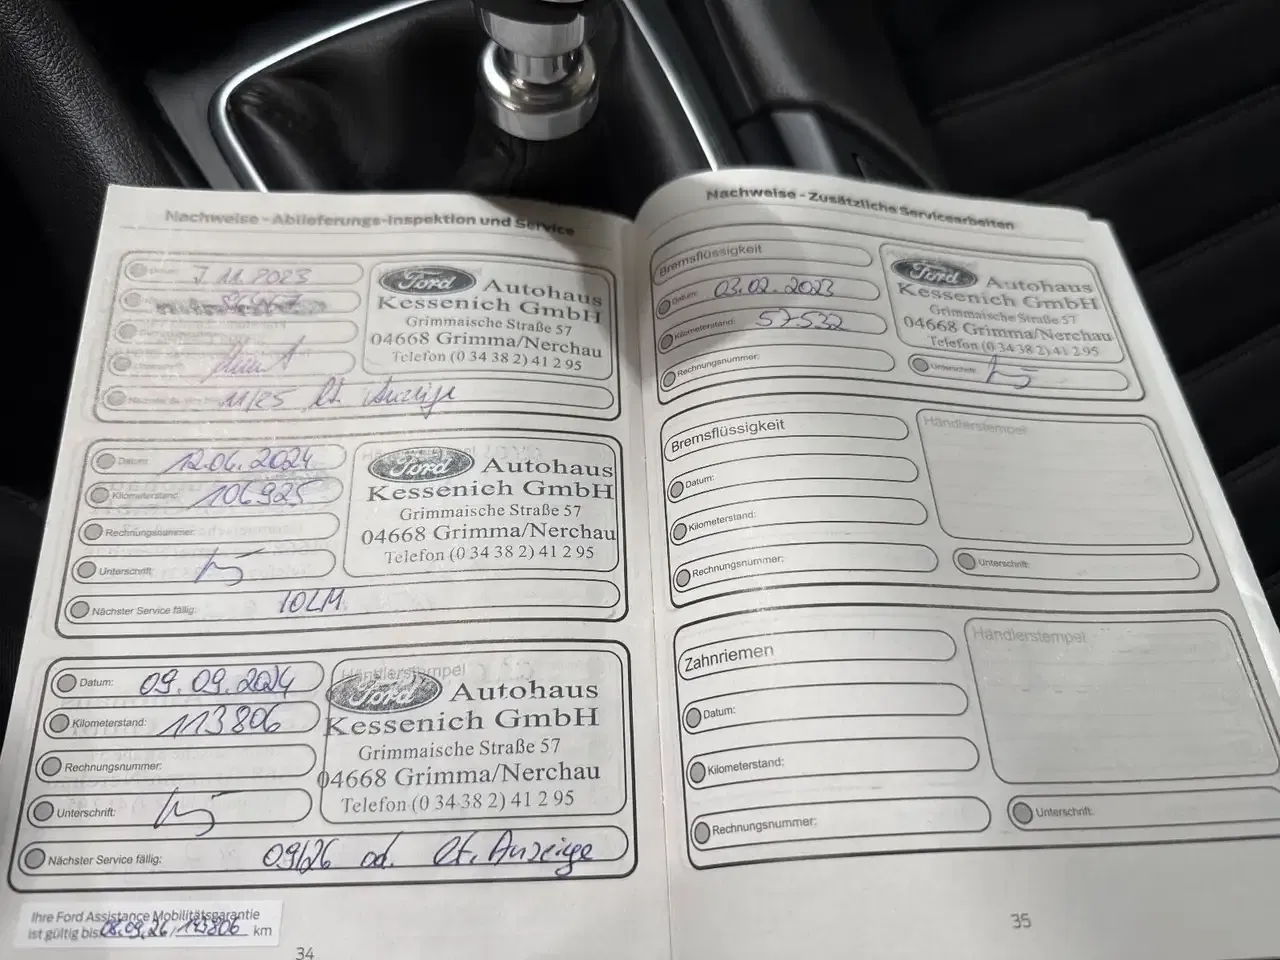 Nachweise - Ablieferungs-Inspektion und Service
7.11.2023
Ford Autohaus
Kessenich GmbH
Grimmaische Straße 57
04668 Grimma/Nerchau
Telefon (0 34 38 2) 41 2 95
11/25 lt. Anzeige
Datum: 12.06.2024
Kilometerstand: 106925
Rechnungsnummer:
Unterschrift:
Ford Autohaus
Kessenich GmbH
Grimmaische Straße 57
04668 Grimma/Nerchau
Telefon (0 34 38 2) 41 2 95
Nächster Service fällig:
Datum: 09.09.2024
Kilometerstand: 113806
Rechnungsnummer:
Unterschrift:
Händlerstempel
Ford Autohaus
Kessenich GmbH
Grimmaische Straße 57
04668 Grimma/Nerchau
Telefon (0 34 38 2) 41 2 95
Nächster Service fällig: 09/26 od. lt. Anzeige
Ihre Ford Assistance Mobilitätsgarantie
ist gültig bis 08.09.26/ km
34
Nachweise - Zusätzliche Servicearbeiten
Bremsflüssigkeit
Datum: 03.02.2023
Kilometerstand: 57532
Rechnungsnummer:
Ford Autohaus
Kessenich GmbH
Grimmaische Straße 57
04668 Grimma/Nerchau
Telefon (0 34 38 2) 41 2 95
Unterschrift:
Bremsflüssigkeit
Datum:
Kilometerstand:
Rechnungsnummer:
Händlerstempel
Unterschrift:
Zahnriemen
Datum:
Kilometerstand:
Rechnungsnummer:
Händlerstempel
Unterschrift:
35